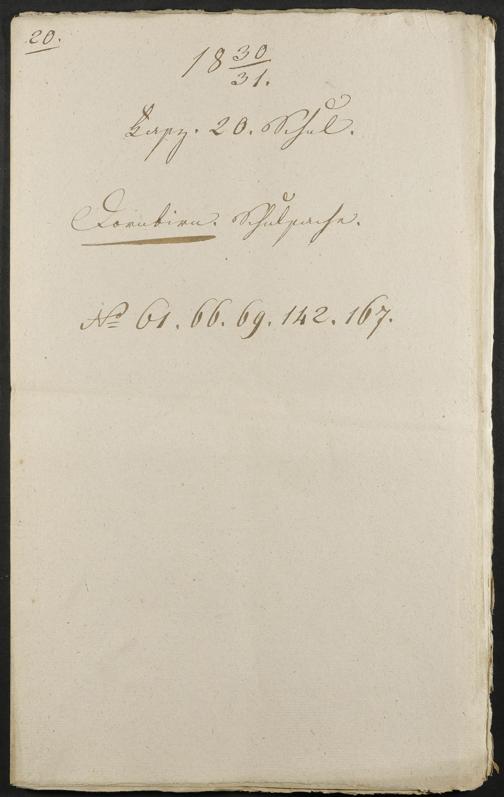 20.
18 30/31.
Fasz. 20. Schul.
Dornbirn. Schulsache.
No 61. 66. 69. 142. 167.